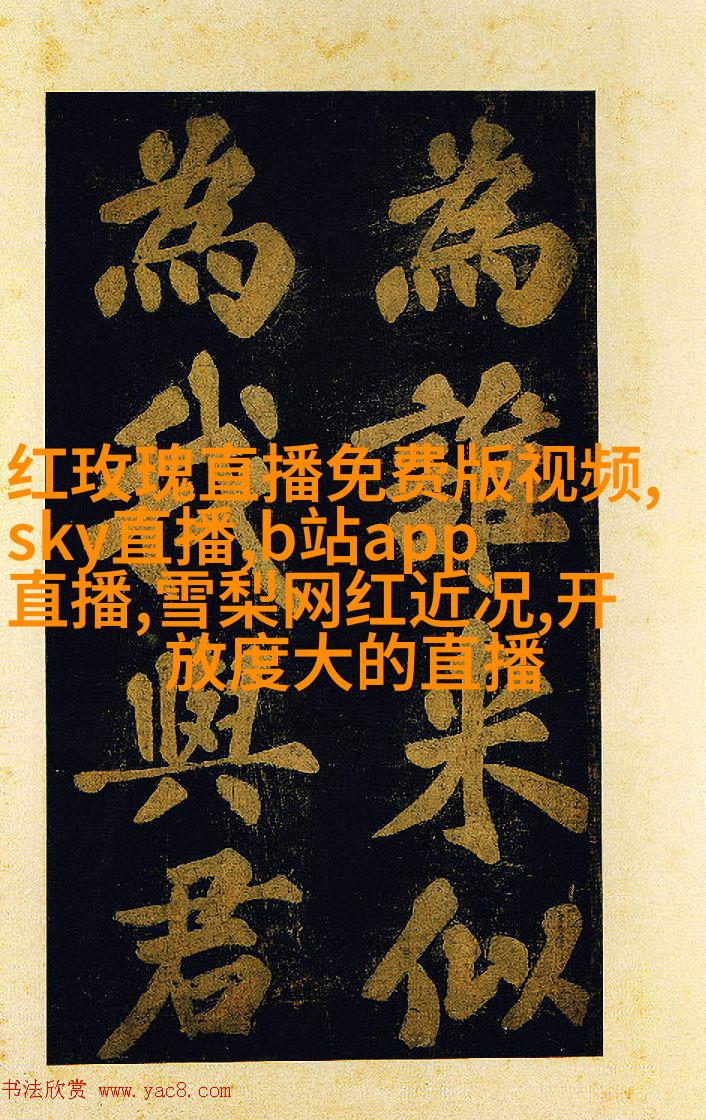 為誰来似
為我與君
红玫瑰直播免费版视频,
sky直播,b站app
直播,雪梨网红近况,开
放度大的直播
书法欣赏 www.yac8.com